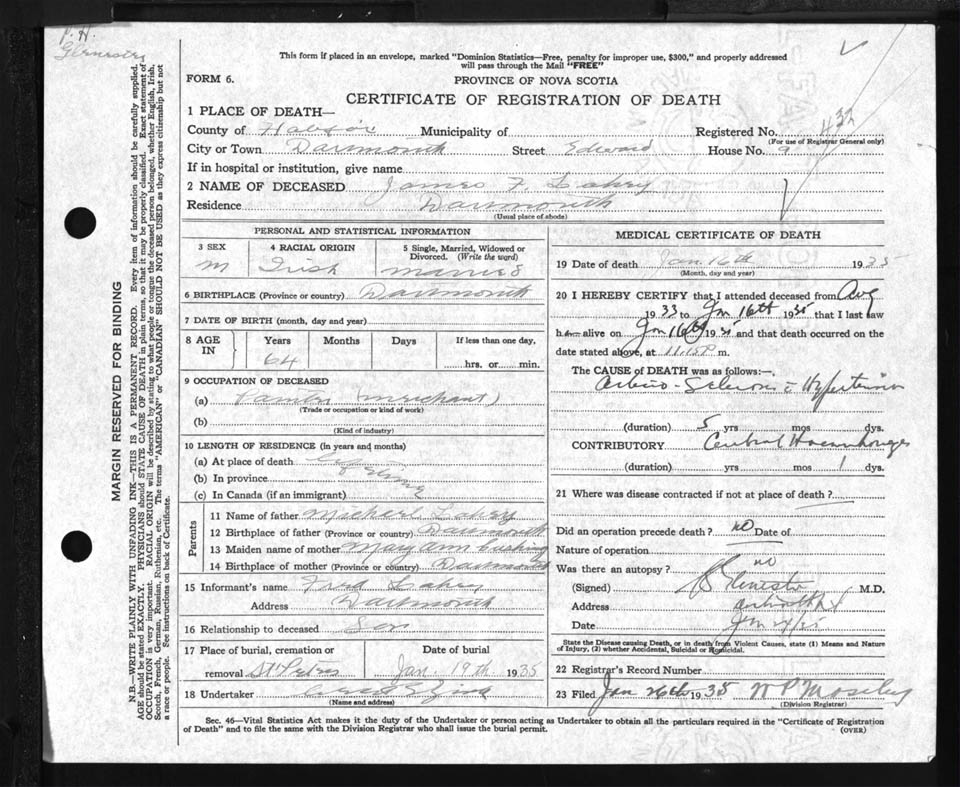 This form if placed in an envelope, marked "Dominion Statistics—Free, penalty for improper use, $300," and properly addressed
will pass through the Mail "FREE"
FORM 6.
PROVINCE OF NOVA SCOTIA
CERTIFICATE OF REGISTRATION OF DEATH
1 PLACE OF DEATH—
County of Halifax Municipality of Registered No. 432
(For use of Registrar General only)
City or Town Dartmouth Street Edward House No. 9
If in hospital or institution, give name
2 NAME OF DECEASED James F. Lahey
Residence Dartmouth
(Usual place of abode)
PERSONAL AND STATISTICAL INFORMATION
3 SEX 4 RACIAL ORIGIN 5 Single, Married, Widowed or
Divorced. (Write the word)
M Irish Married
6 BIRTHPLACE (Province or country) Dartmouth
7 DATE OF BIRTH (month, day and year)
8 AGE IN Years Months Days If less than one day,
64 hrs. or min.
9 OCCUPATION OF DECEASED
(a) Painter (merchant)
(Trade or occupation or kind of work)
(b)
(Kind of industry)
10 LENGTH OF RESIDENCE (in years and months)
(a) At place of death
(b) In province
(c) In Canada (if an immigrant)
Parents
11 Name of father Michael Lahey
12 Birthplace of father (Province or country) Dartmouth
13 Maiden name of mother Mary Ann Cushing
14 Birthplace of mother (Province or country) Dartmouth
15 Informant's name Fred Lahey
Address Dartmouth
16 Relationship to deceased Son
17 Place of burial, cremation or Date of burial
removal St Peters Jan. 19th 1935
18 Undertaker
(Name and address)
MEDICAL CERTIFICATE OF DEATH
19 Date of death Jan. 16th 1935
(Month, day and year)
20 I HEREBY CERTIFY that I attended deceased from Aug
1933 to Jan 16th 1935 that I last saw
h alive on Jan 16th 1935 and that death occurred on the
date stated above, at 11.15P m.
The CAUSE OF DEATH was as follows:—
Arterio-Sclerosis c Hypertension
(duration) 5 yrs mos dys.
CONTRIBUTORY Cerebral Haemorrhage
(duration) yrs mos 1 dys.
21 Where was disease contracted if not at place of death?
Did an operation precede death? no Date of
Nature of operation
Was there an autopsy? no
(Signed) M.D.
Address
Date
State the Disease causing Death, or in death from Violent Causes, state (1) Means and Nature
of Injury, (2) whether Accidental, Suicidal or Homicidal.
22 Registrar's Record Number
23 Filed Jan 26th 1935 W P Moseley
(Division Registrar)
Sec. 46—Vital Statistics Act makes it the duty of the Undertaker or person acting as Undertaker to obtain all the particulars required in the "Certificate of Registration
of Death" and to file the same with the Division Registrar who shall issue the burial permit. (OVER)
MARGIN RESERVED FOR BINDING
N.B.—WRITE PLAINLY WITH UNFADING INK—THIS IS A PERMANENT RECORD. Every item of information should be carefully supplied.
AGE should be stated EXACTLY. PHYSICIANS should STATE CAUSE OF DEATH in plain terms, so that it may be properly classified. Exact statement of
OCCUPATION is very important. RACIAL ORIGIN will be described by stating to what people or tongue the deceased person belonged, whether English, Irish,
Scotch, French, German, Russian, Ruthenian, etc. The terms "AMERICAN" or "CANADIAN" SHOULD NOT BE USED as they express citizenship but not
a race or people. See instructions on back of Certificate.